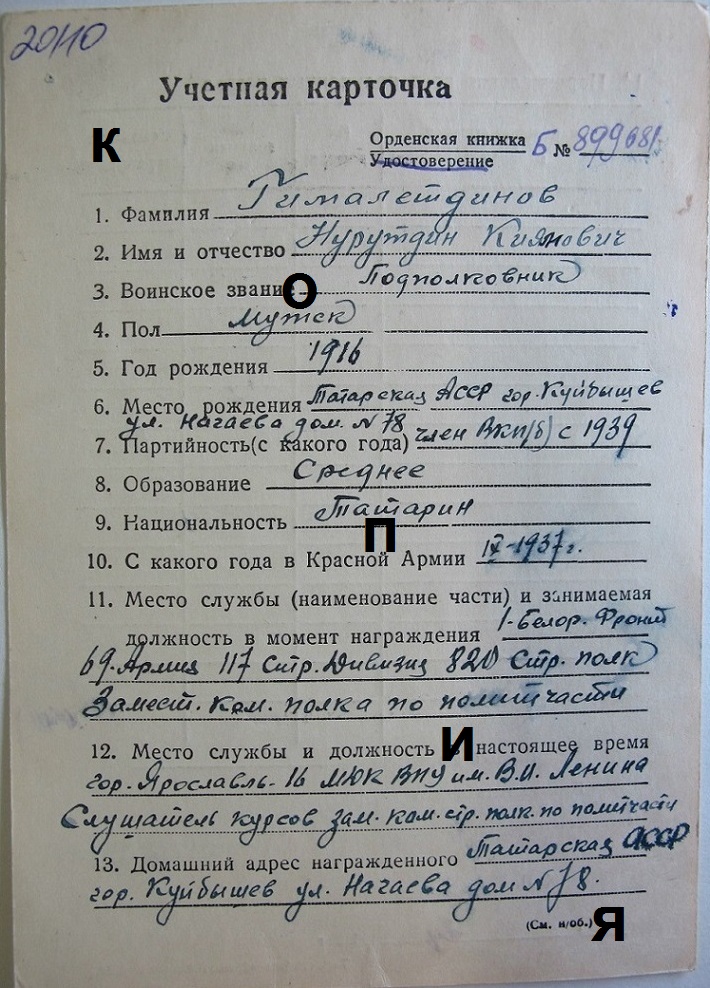 20/10
Учетная карточка
К
Орденская книжка Б № 899681
Удостоверение
1. Фамилия Гималетдинов
2. Имя и отчество Нурутдин Киямович
3. Воинское звание О Подполковник
4. Пол Мужск
5. Год рождения 1916
6. Место рождения Татарская АССР гор. Куйбышев
ул. Нагаева дом. N 78
7. Партийность(с какого года) член ВКП(б) с 1939
8. Образование Среднее
9. Национальность Татарин
П
10. С какого года в Красной Армии IX-1937 г.
11. Место службы (наименование части) и занимаемая
должность в момент награждения 1-Белор. Фронт
69. Армия 117 Стр. Дивизия 820 Стр. полк
Замест. ком. полка по политчасти
12. Место службы и должность И настоящее время
гор. Ярославль- 16 МЮК ВПУ им. В.И. Ленина
Слушатель курсов зам. ком. стр. полк. по политчасти
13. Домашний адрес награжденного Татарская АССР
гор. Куйбышев ул. Нагаева дом N 78.
(См. н/об.) Я